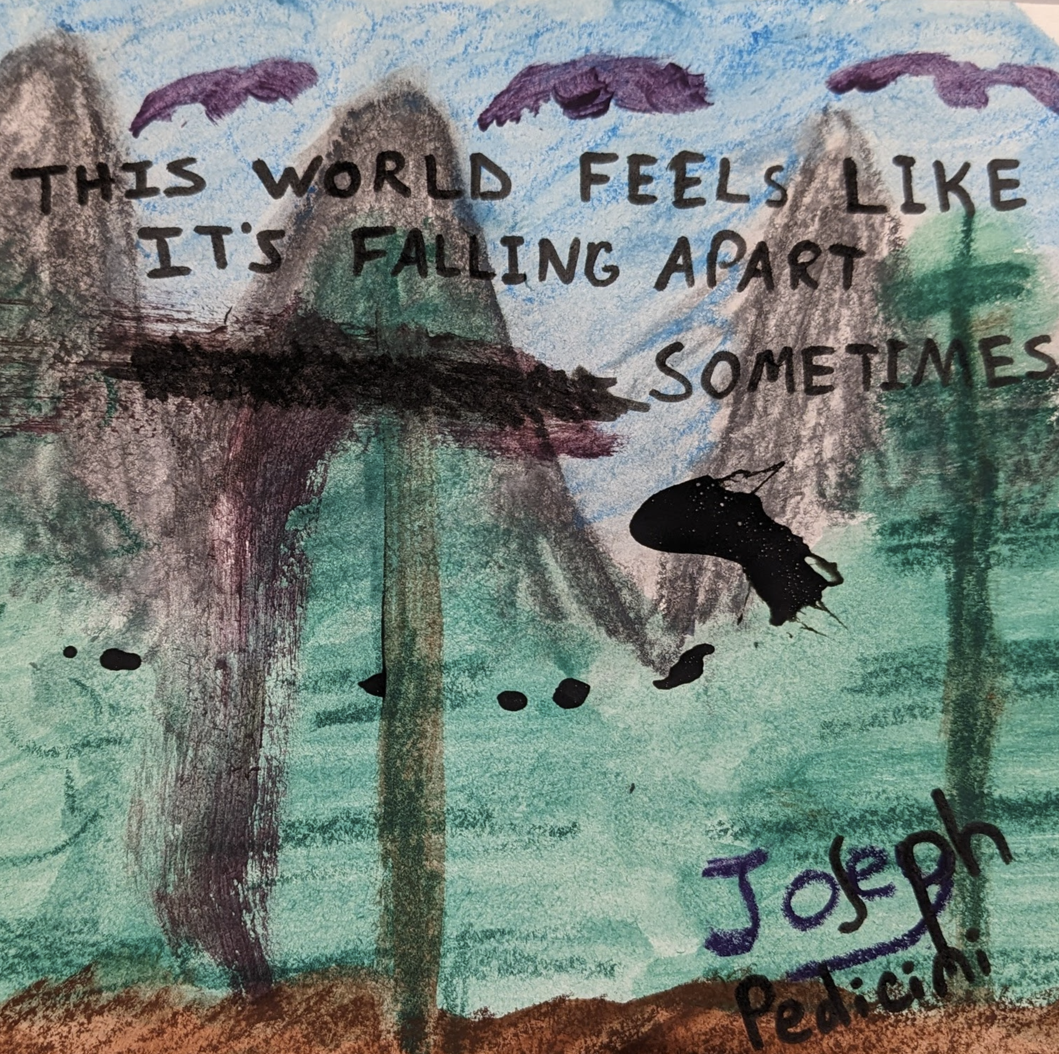 THIS WORLD FEELS LIKE
IT'S FALLING APART
SOMETIMES
Joseph
Pedicini